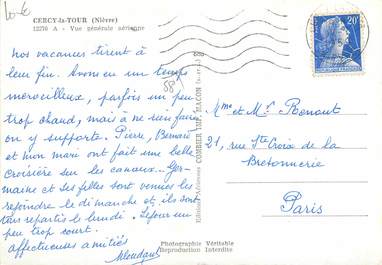 CERCY-la-TOUR (Nièvre)
12276 A - Vue générale aérienne
nos vacances tirent à
leur fin. Avons eu un temps
merveilleux, parfois un peu
trop chaud, mais à ne rien faire
on y supporte. Pierre, Bernard
et mon mari ont fait une belle
croisière sur les canaux. Ger-
maine et ses filles sont venues les
rejoindre le dimanche et ils sont
tars repartis le lundi. Séjour un
peu trop court.
affectueuses amitiés
COMBIER IMP. MACON
Photographie Véritable
Reproduction Interdite
20F
Mme et Mr. Renaut
21, rue Ste Croix de la
Bretonnerie
Paris